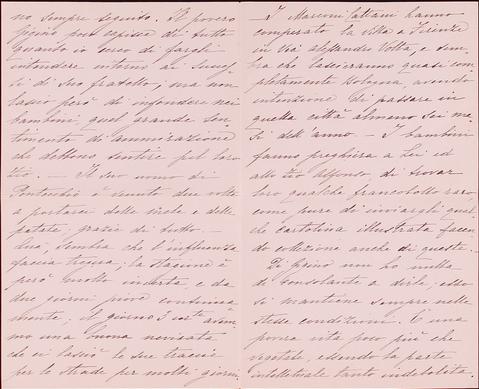 no sempre seguito. Il povero
Gigino poco capisce di tutto
quando io cerco di fargli
intendere intorno ai succes-
si di suo fratello, ma non
lascio però di infondere nei
bambini, quel grande sen-
timento di ammirazione
che debbono sentire pel loro
zio. — Il suo uomo di
Pontecchio è venuto due volte
a portarci delle mele e delle
patate, grazie di tutto. —
Qui, sembra che l'influenza
faccia tregua; la stagione è
però molto incerta, e da
due giorni piove continua
mente; il giorno 3 corte avem
mo una buona nevicata
che ci lasciò le sue traccie
per le strade per molti giorni.
I Marconi Cattani hanno
comperato la villa a Firenze
in Via Alessandro Volta, e sem
bra che lasceranno quasi com
pletamente Bologna, avendo
intenzione di passare in
quella città almeno sei me-
si dell'anno. — I bambini
fanno preghiera a Lei ed
allo zio Alfonso, di trovar
loro qualche francobollo raro,
come pure di inviargli qual
che cartolina illustrata facen
do collezione anche di queste.
Di Gigino non ho nulla
di consolante a dirle, esso
si mantiene sempre nelle
stesse condizioni. È una
povera vita poco più che
vegetale, essendo la parte
intellettuale tanto indebolita.